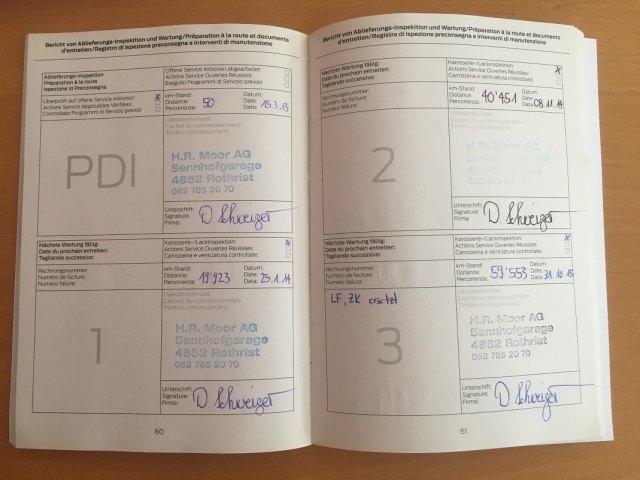 Bericht von Ablieferungs-Inspektion und Wartung/Préparation à la route et documents
d'entretien/Registro di ispezione preconsegna e interventi di manutenzione
Ablieferungs-Inspektion
Préparation à la route
Ispezione di Preconsegna
Offene Service Aktionen abgearbeitet:
Actions Service Ouveries Réussies:
Eseguito Programmi di Servizio previsi:
Überprüft auf offene Service Aktionen:
Actions Service Applicables Vérifiées:
Controllato Programmi di Servizio previsi:
x
km-Stand:
Distance:
Percorrenza:
50
Datum:
Date:
Data:
15.3.13
PDI
Händlerstempel
Cachet du concessionnaire
Timbro concessionario
H.R. Moor AG
Sennhofgarage
4852 Rothrist
062 785 20 70
Unterschrift:
Signature:
Firma:
D. Schweizer
Nächste Wartung fällig:
Date du prochain entretien:
Tagliando successivo:
Karosserie-/Lackinspektion:
Actions Service Ouveries Réussies:
Carrozzeria e verniciatura controllate:
x
Rechnungsnummer:
Numéro de facture:
Numero fattura:
km-Stand:
Distance:
Percorrenza:
19'923
Datum:
Date:
Data:
25.1.14
1
Händlerstempel
Cachet du concessionnaire
Timbro concessionario
H.R. Moor AG
Sennhofgarage
4852 Rothrist
062 785 20 70
Unterschrift:
Signature:
Firma:
D. Schweizer
60
Bericht von Ablieferungs-Inspektion und Wartung/Préparation à la route et documents
d'entretien/Registro di ispezione preconsegna e interventi di manutenzione
Nächste Wartung fällig:
Date du prochain entretien:
Tagliando successivo:
Karosserie-/Lackinspektion:
Actions Service Ouveries Réussies:
Carrozzeria e verniciatura controllate:
x
Rechnungsnummer:
Numéro de facture:
Numero fattura:
km-Stand:
Distance:
Percorrenza:
40'451
Datum:
Date:
Data:
08.11.14
2
Händlerstempel
Cachet du concessionnaire
Timbro concessionario
H.R. Moor AG
Sennhofgarage
4852 Rothrist
062 785 20 70
Unterschrift:
Signature:
Firma:
D. Schweizer
Nächste Wartung fällig:
Date du prochain entretien:
Tagliando successivo:
Karosserie-/Lackinspektion:
Actions Service Ouveries Réussies:
Carrozzeria e verniciatura controllate:
x
Rechnungsnummer:
Numéro de facture:
Numero fattura:
km-Stand:
Distance:
Percorrenza:
59'553
Datum:
Date:
Data:
31.10.15
LF, ZK ersetzt
3
Händlerstempel
Cachet du concessionnaire
Timbro concessionario
H.R. Moor AG
Sennhofgarage
4852 Rothrist
062 785 20 70
Unterschrift:
Signature:
Firma:
D. Schweizer
61